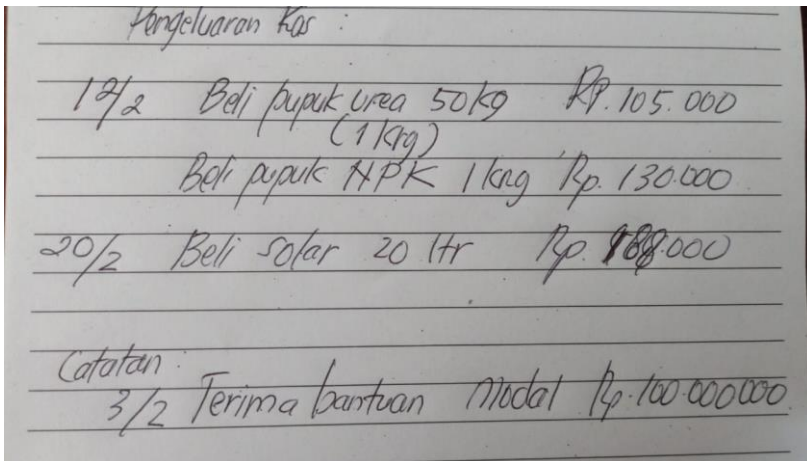 Pengeluaran Kas :
12/2 Beli pupuk urea 50kg Rp. 105.000
(1 krg)
Beli pupuk NPK 1 krng Rp. 130.000
20/2 Beli solar 20 ltr Rp.
Catatan :
3/2 Terima bantuan modal Rp. 100.000000